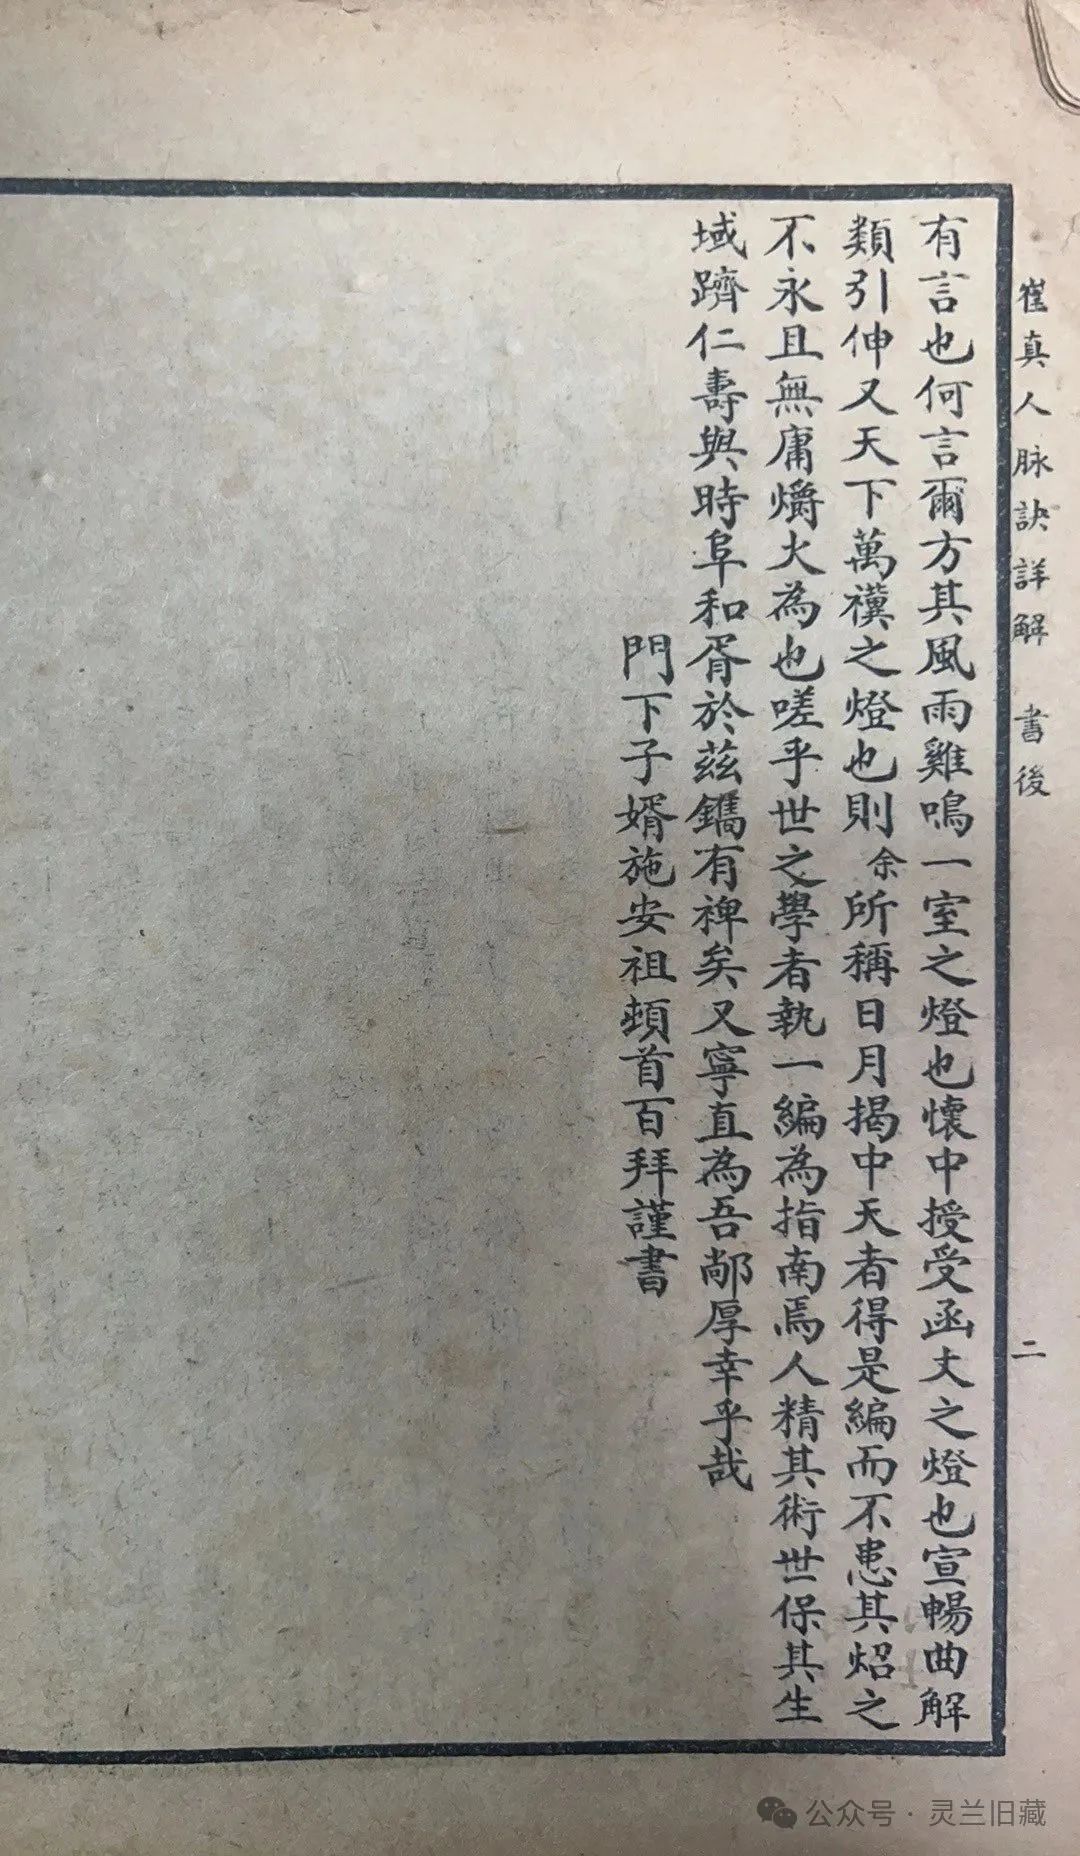 崔真人脉訣詳解 書後 二
有言也何言爾方其風雨雞鳴一室之燈也懷中授受函丈之燈也宣暢曲解
類引伸又天下萬禩之燈也則余所稱日月揭中天者得是編而不患其炤之
不永且無庸爝火為也嗟乎世之學者執一編為指南焉人精其術世保其生
域躋仁壽與時阜和胥於茲鐫有裨矣又寧直為吾鄉厚幸乎哉
門下子婿施安祖頓首百拜謹書
公众号·灵兰旧藏